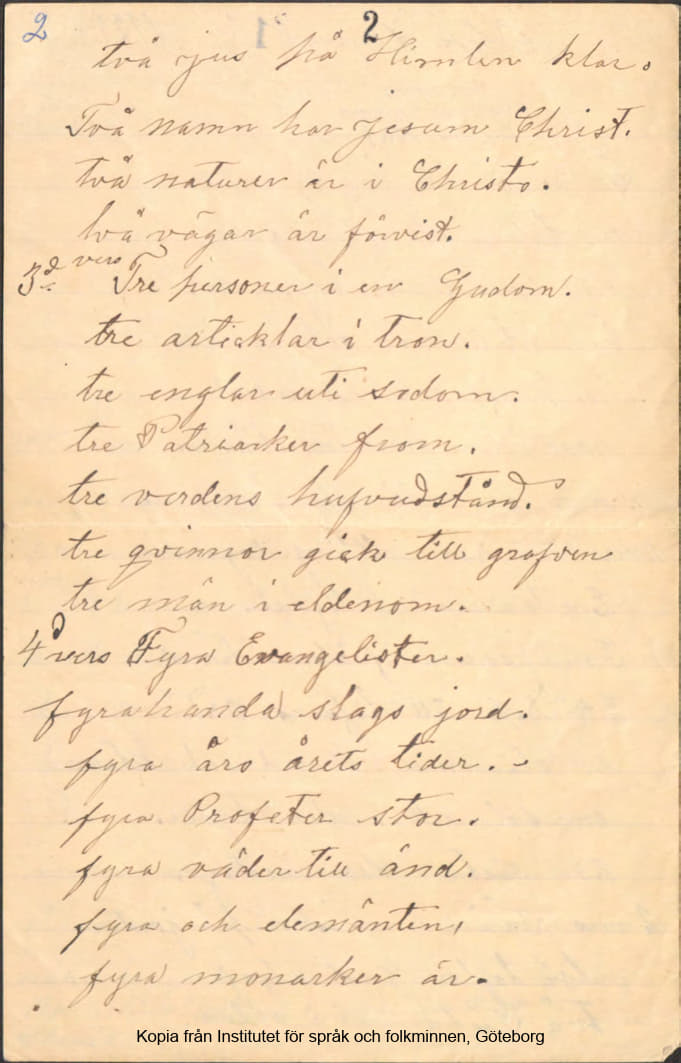 2 2
två jus på Himlen klar.
Två namn har Jesum Christ.
två naturer är i Christo.
två vägar är förvist.
3d vers Tre personer i en Gudom.
tre articklar i tron.
tre englar uti sodom.
tre Patriarker from.
tre verdens hufvudstånd.
tre qvinnor gick till grafven
tre män i eldenom.
4d vers Fyra Evangelister.
fyrahanda slags jord.
fyra äro årets tider.
fyra Profeter stor.
fyra väder till änd.
fyra och elementen,
fyra monarker är.
Kopia från Institutet för språk och folkminnen, Göteborg